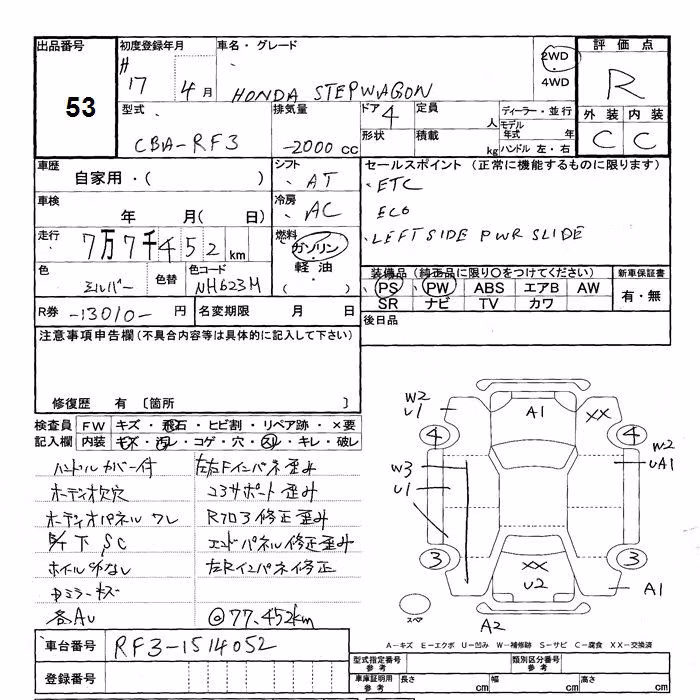 出品番号
53
初度登録年月
H
17 4月
車名・グレード
HONDA STEPWAGON
2WD
4WD
評価点
R
外装 内装
C C
型式
CBA-RF3
排気量
-2000 cc
ドア 4
形状
定員
人
積載
kg
ディーラー・並行
モデル
年式 年
ハンドル 左・右
車歴
自家用・( )
シフト
AT
セールスポイント (正常に機能するものに限ります)
ETC
ECO
LEFT SIDE PWR SLIDE
車検
年 月( 日)
冷房
AC
走行
7万7千452km
燃料
ガソリン
軽油
( )
色
シルバー
色替
色コード
NH623M
装備品 (純正品に限り○をつけてください)
PS PW ABS エアB AW
SR ナビ TV カワ
新車保証書
有・無
R券 -13010- 円
名変期限 月 日
後日品
注意事項申告欄 (不具合内容等は具体的に記入して下さい)
修復歴 有 〔箇所
検査員
記入欄
FW キズ・飛石・ヒビ割・リペア跡・×要
内装 キズ・汚レ・コゲ・穴・スレ・キレ・破レ
ハンドルカバー付
オーディオ欠穴
オーディオパネル ワレ
下 SC
ホイルキャップなし
ミラーキズ
各AU
左右Fインパネ歪み
コアサポート歪み
Rフロア修正歪み
エンドパネル修正歪み
左Rインパネ修正
◎77,452km
W2
U1
A1
XX
4
4
W2
UA1
W3
U1
3
3
XX
U2
A1
スペア
A2
A-キズ E-エクボ U-凹み W-補修跡 S-サビ C-腐食 XX-交換済
車台番号
RF3-1514052
登録番号
型式指定番号
参考
類別区分番号
参考
車庫証明用
参考
長さ cm
幅 cm
高さ cm